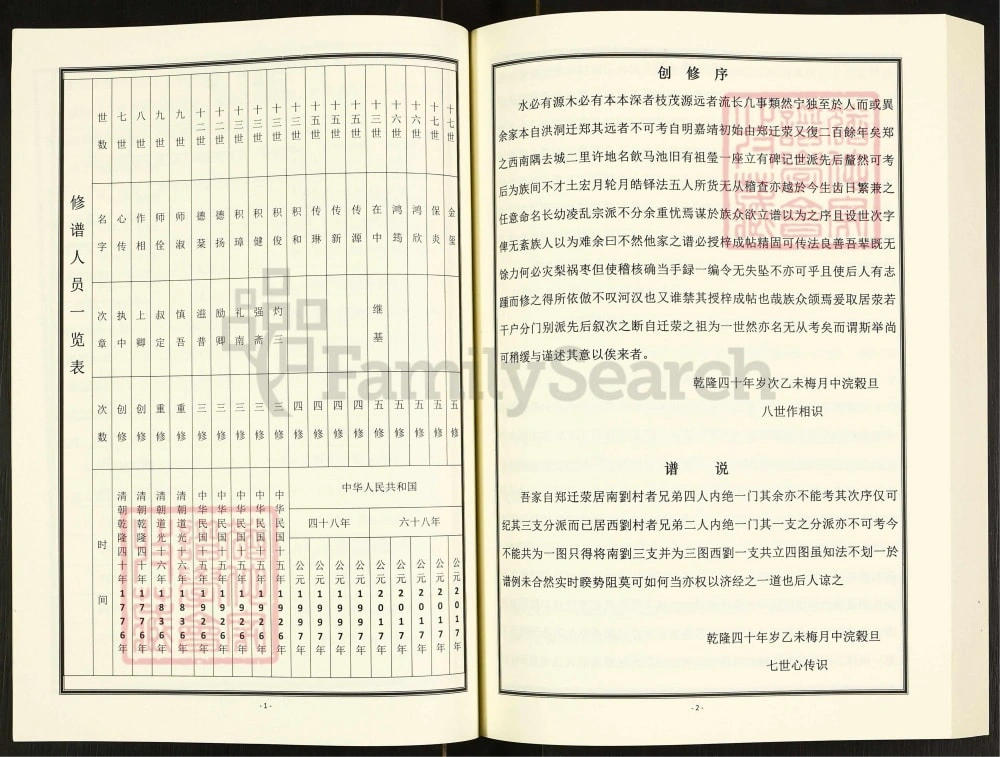 修谱人员一览表
世数 七世 八世 九世 九世 十二世 十二世 十三世 十三世 十三世 十三世 十五世 十五世 十三世 十六世 十六世 十七世 十七世
名字 心传 作相 师佺 师淑 德菜 德扬 积璋 积健 积俊 积和 传琳 传新 传源 在中 鸿筠 鸿欣 保炎 金玺
次章 执中 上卿 叔定 慎吾 滋普 励卿 礼南 强斋 灼三 继基
次数 创修 创修 重修 重修 三修 三修 三修 三修 三修 四修 四修 四修 四修 五修 五修 五修 五修 五修
时间
中华人民共和国
四十八年 六十八年
清朝乾隆四十年1776年 清朝乾隆四十年1776年 清朝道光十六年1836年 清朝道光十六年1836年 中华民国十五年1926年 中华民国十五年1926年 中华民国十五年1926年 中华民国十五年1926年 中华民国十五年1926年 公元1997年 公元1997年 公元1997年 公元1997年 公元2017年 公元2017年 公元2017年 公元2017年 公元2017年
-1-
创修序
水必有源木必有本本深者枝茂源远者流长凡事類然宁独至於人而或異
余家本自洪洞迁郑其远者不可考自明嘉靖初始由郑迁荥又復二百餘年矣郑
之西南隅去城二里许地名飲马池旧有祖莹一座立有碑记世派先后釐然可考
后为族间不才土宏月轮月皓铎法五人所货无从稽查亦越於今生齿日繁兼之
任意命名长幼凌乱宗派不分余重忧焉谋於族众欲立谱以为之序且设世次字
俾无紊族人以为难余曰不然他家之谱必授梓成帖精固可传法良善吾辈既无
馀力何必灾梨祸枣但使稽核确当手録一编令无失坠不亦可乎且使后人有志
踵而修之得所依倣不叹河汉也又谁禁其授梓成帖也哉族众颌焉爰取居荥若
干户分门别派先后叙次之断自迁荥之祖为一世然亦名无从考矣而谓斯举尚
可稍缓与谨述其意以俟来者。
乾隆四十年岁次乙未梅月中浣穀旦
八世作相识
谱说
吾家自郑迁荥居南劉村者兄弟四人内绝一门其余亦不能考其次序仅可
纪其三支分派而已居西劉村者兄弟二人内绝一门其一支之分派亦不可考今
不能共为一图只得将南劉三支并为三图西劉一支共立四图虽知法不划一於
谱例未合然实时睽势阻莫可如何当亦权以济经之一道也后人谅之
乾隆四十年岁乙未梅月中浣穀旦
七世心传识
-2-
FamilySearch